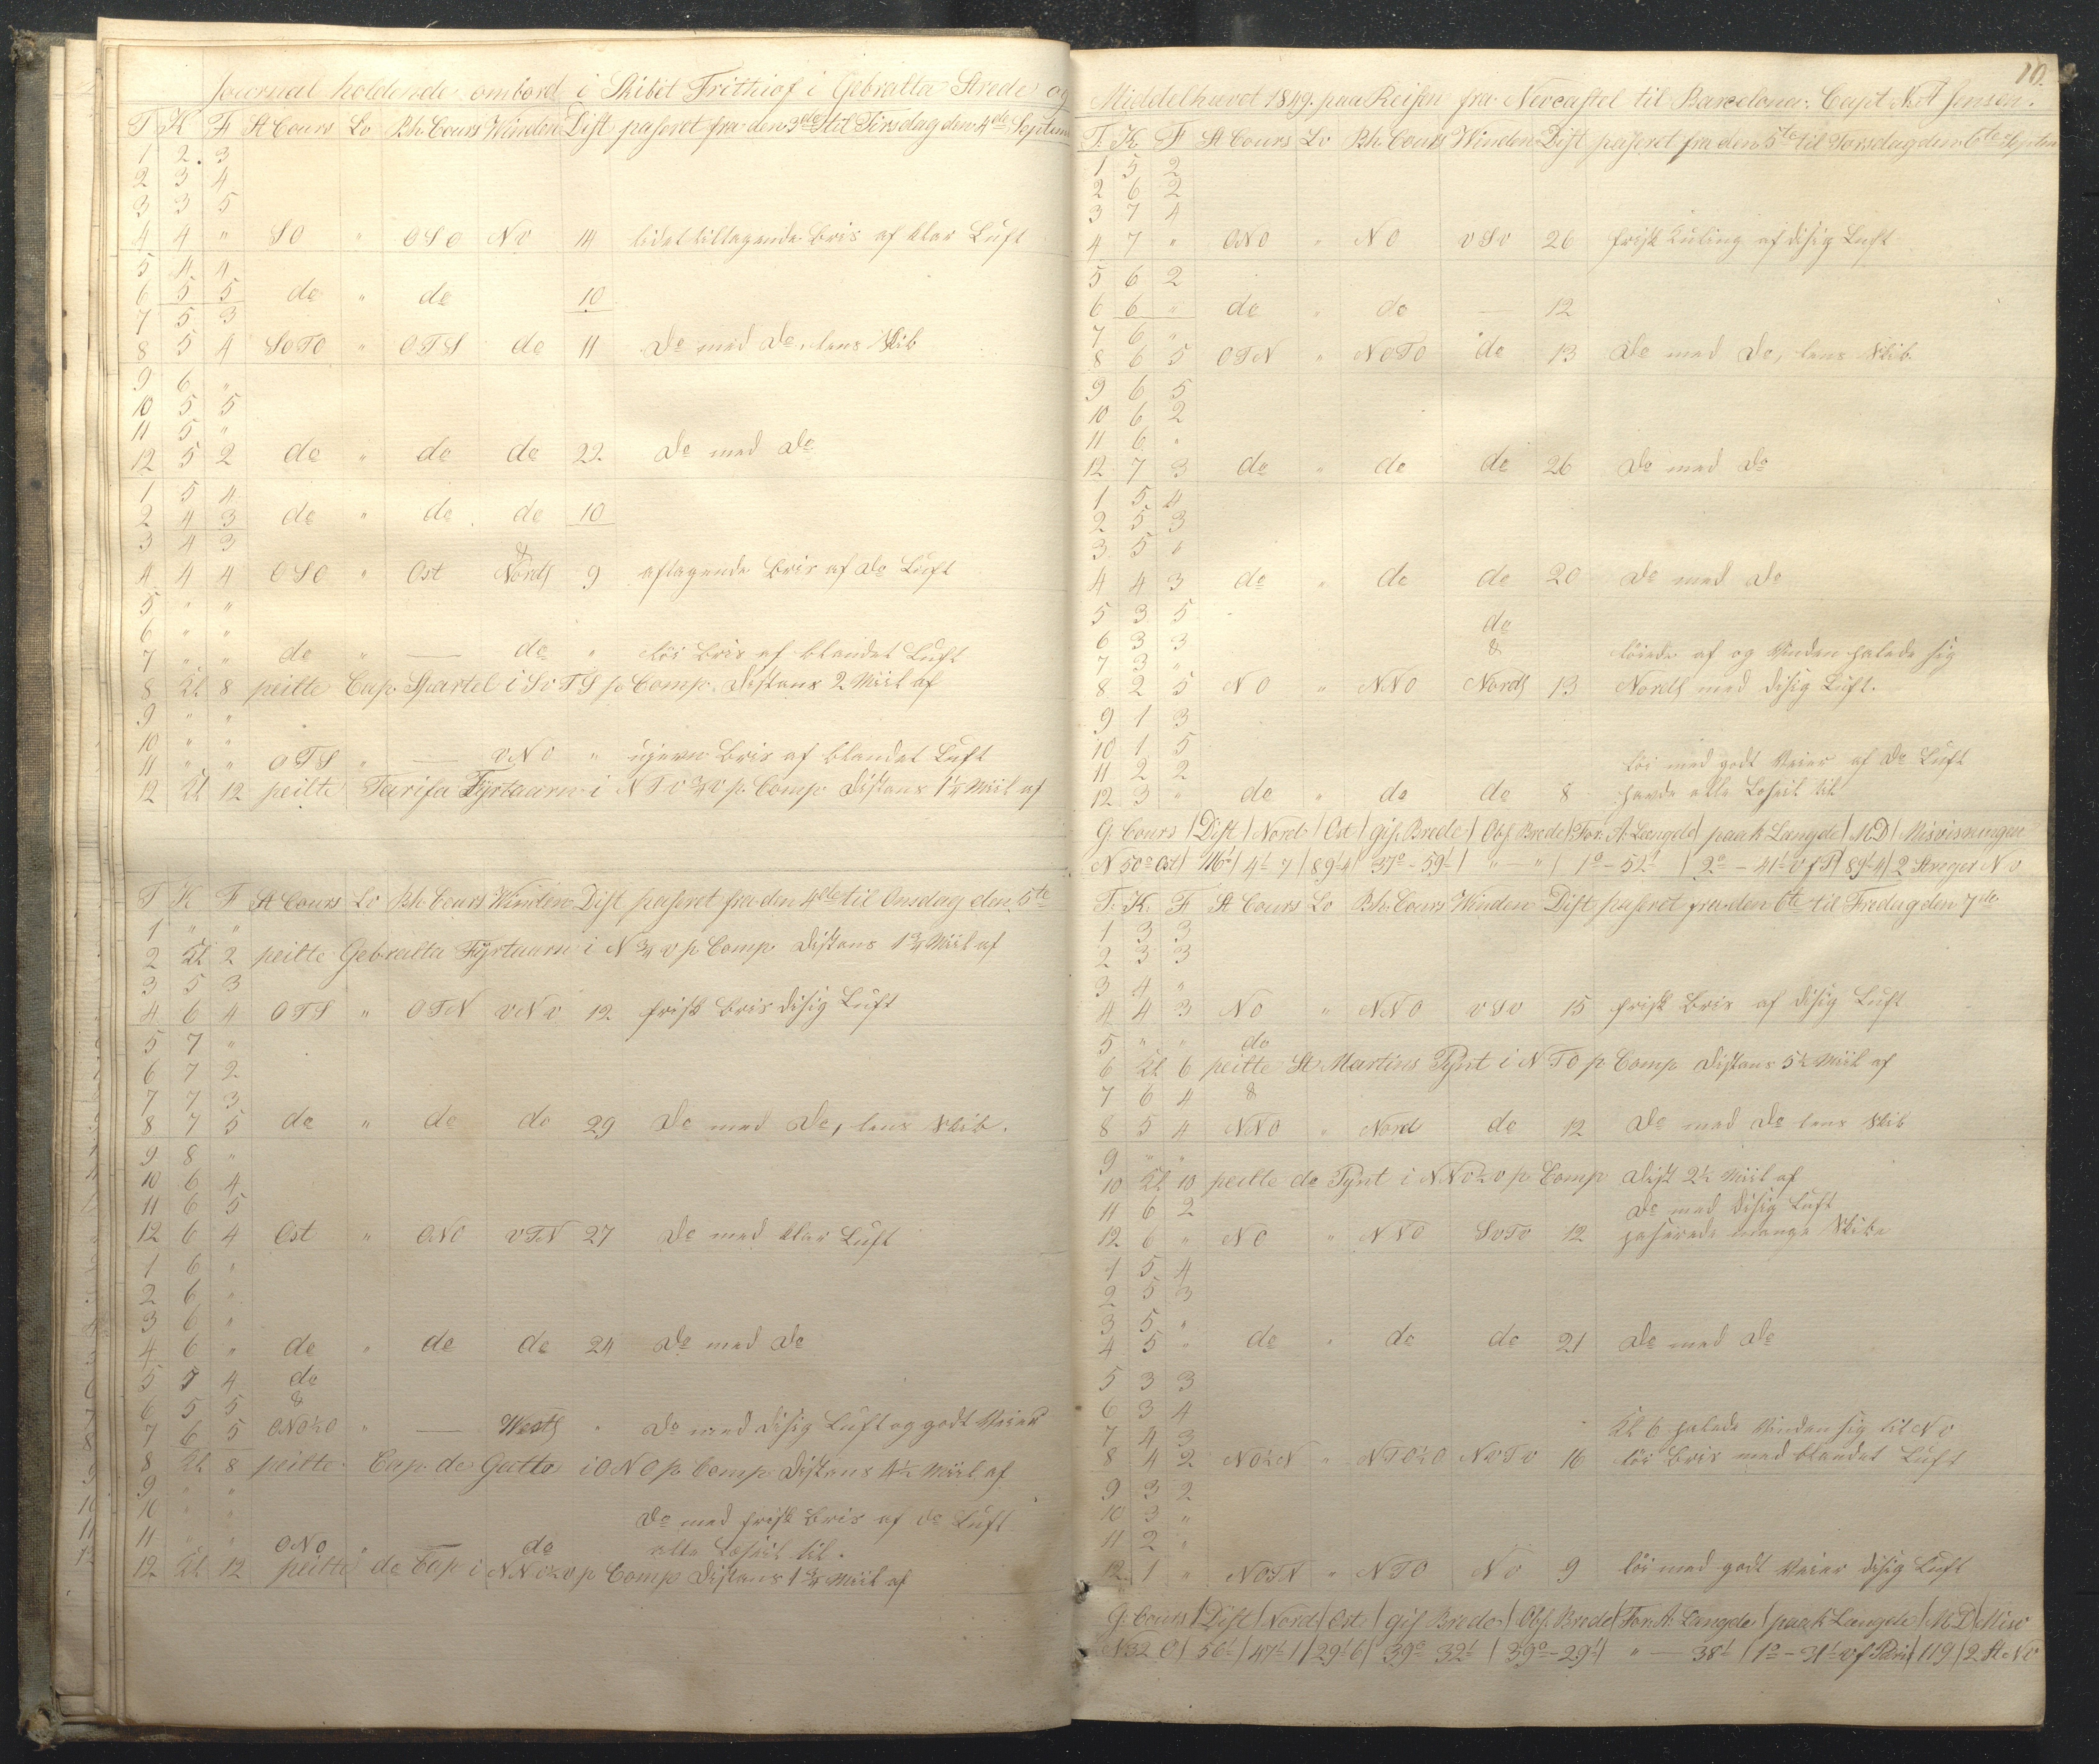 Journal holdende ombord i Skibet Frithiof i Gebralta Strede og
T K F St Cours Lo Bh. Cours Winden Dist paseret fra den 3de til Tirsdag den 4de Septem
1 2 3
2 3 4
3 3 5
4 4 " SO " OSO Nv 14 lidet tiltagende Bris af klar Luft
5 4 4
6 5 5 do " do 10
7 5 3
8 5 4 SOTO " OTS do 11 Do med Do, lens Skib
9 6 "
10 5 5
11 5 "
12 5 2 do " do do 22 Do med Do
1 5 4
2 4 3 do " do do 10
3 4 3 &
4 4 4 OSO " Ost Nords 9 aftagende Bris af Do Luft
5 " "
6 " "
7 " " do " — do " löi Bris af blandet Luft
8 Kl 8 peilte Cap Spartel i SvTS p Comp. Distans 2 Miil af
9 " "
10 " "
11 " " OTS " — vNO " ujevn Bris af blandet Luft
12 Kl 12 peilte Tarifa Fyrtaarn i NTv¾v p. Comp Distans 1½ Miil af
T K F St Cours Lo Bh. Cours Winden Dist paseret fra den 4de til Onsdag den 5te
1 " "
2 Kl 2 peilte Gebralta Fyrtaarn i N¾v p Comp. Distans 1¾ Miil af
3 5 3
4 6 4 OTS " OTN vNv 12 frisk Bris disig Luft
5 7 "
6 7 2
7 7 3
8 7 5 do " do do 29 Do med Do, lens Skib.
9 8 "
10 6 4
11 6 5
12 6 4 Ost " ONO vTN 27 Do med klar Luft
1 6 "
2 6 "
3 6 "
4 6 " do " do do 24 Do med Do
5 5 4 do
6 5 5 &
7 6 5 ONO½O " — Wests " Do med disig Luft og godt Veier
8 Kl 8 peilte Cap de Gatto i ONO p Comp. Distans 4½ Miil af
9 " "
10 " " Do med frisk Bris af Do Luft
11 " " ONO " do alle Leiseil til.
12 Kl 12 peilte do Cap i NNv½v p Comp Distans 1¾ Miil af
10.
Middelhavet 1849. paa Reisen fra Newcastel til Barcelona. Capt N. A Jensen.
T. K. F St Cours Lo Bh. Cours Winden Dist paseret fra den 5te til Torsdag den 6te Septem
1 5 2
2 6 2
3 7 4
4 7 " ONO " NO vSv 26 frisk Kuling af disig Luft
5 6 2
6 6 " do " do — 12
7 6 "
8 6 5 OTN " NOTO do 13 Do med Do, lens Skib
9 6 5
10 6 2
11 6 "
12 7 3 do " do do 26 Do med Do
1 5 4
2 5 3
3 5 "
4 4 3 do " do do 20 Do med Do
5 3 5 do
6 3 3 & löiede af og Vinden halede sig
7 3 "
8 2 5 NO " NNO Nords 13 Nords med disig Luft.
9 1 3
10 1 5
11 2 2 löi med godt Veier af Do Luft
12 3 " do " do do 8 havde alle Leseil til
G. Cours | Dist | Nord | Ost | gis. Brede | Obs. Brede | For. A. Længde | paak. Længde | MD | Misvisningen
N 50° Ost | 116' | 74'7 | 89'4 | 37° - 59' | " — " | 1° - 52' | 2° - 41' v f P | 89'4 | 2 Streger Nv
T. K. F St Cours Lo Bh. Cours Winden Dist paseret fra den 6te til Fredag den 7de
1 3 3
2 3 3
3 4 "
4 4 3 NO " NNO vSv 15 frisk Bris af disig Luft
5 " " do
6 Kl 6 peilte St Martins Pynt i NTO p Comp Distans 5½ Miil af
7 6 4 &
8 5 4 NNO " Nord do 12 Do med Do lens Skib
9 " "
10 Kl 10 peilte do Pynt i NNv½v p. Comp Dist 2½ Miil af
11 6 2 Do med disig Luft
12 6 " NO " NNO SvTv 12 paserede mange Skibe
1 5 4
2 5 3
3 5 "
4 5 " do " do do 21 Do med Do
5 3 3
6 3 4
7 4 3 Kl 6 halede Vinden sig til Nv
8 4 2 NO½N " NTO½O NvTv 16 löi Bris med blandet Luft
9 3 2
10 3 "
11 2 "
12 1 " NOTN " NTO Nv 9 löi med godt Veier disig Luft
G. Cours | Dist | Nord | Ost | gis Brede | Obs. Brede | For. A. Længde | paak Længde | MD | Misv
N 32 O | 56' | 47'1 | 29'6 | 39° 32' | 39° - 29' | " — 38' | 1° - 31' v f Paris | 119 | 2 St. Nv